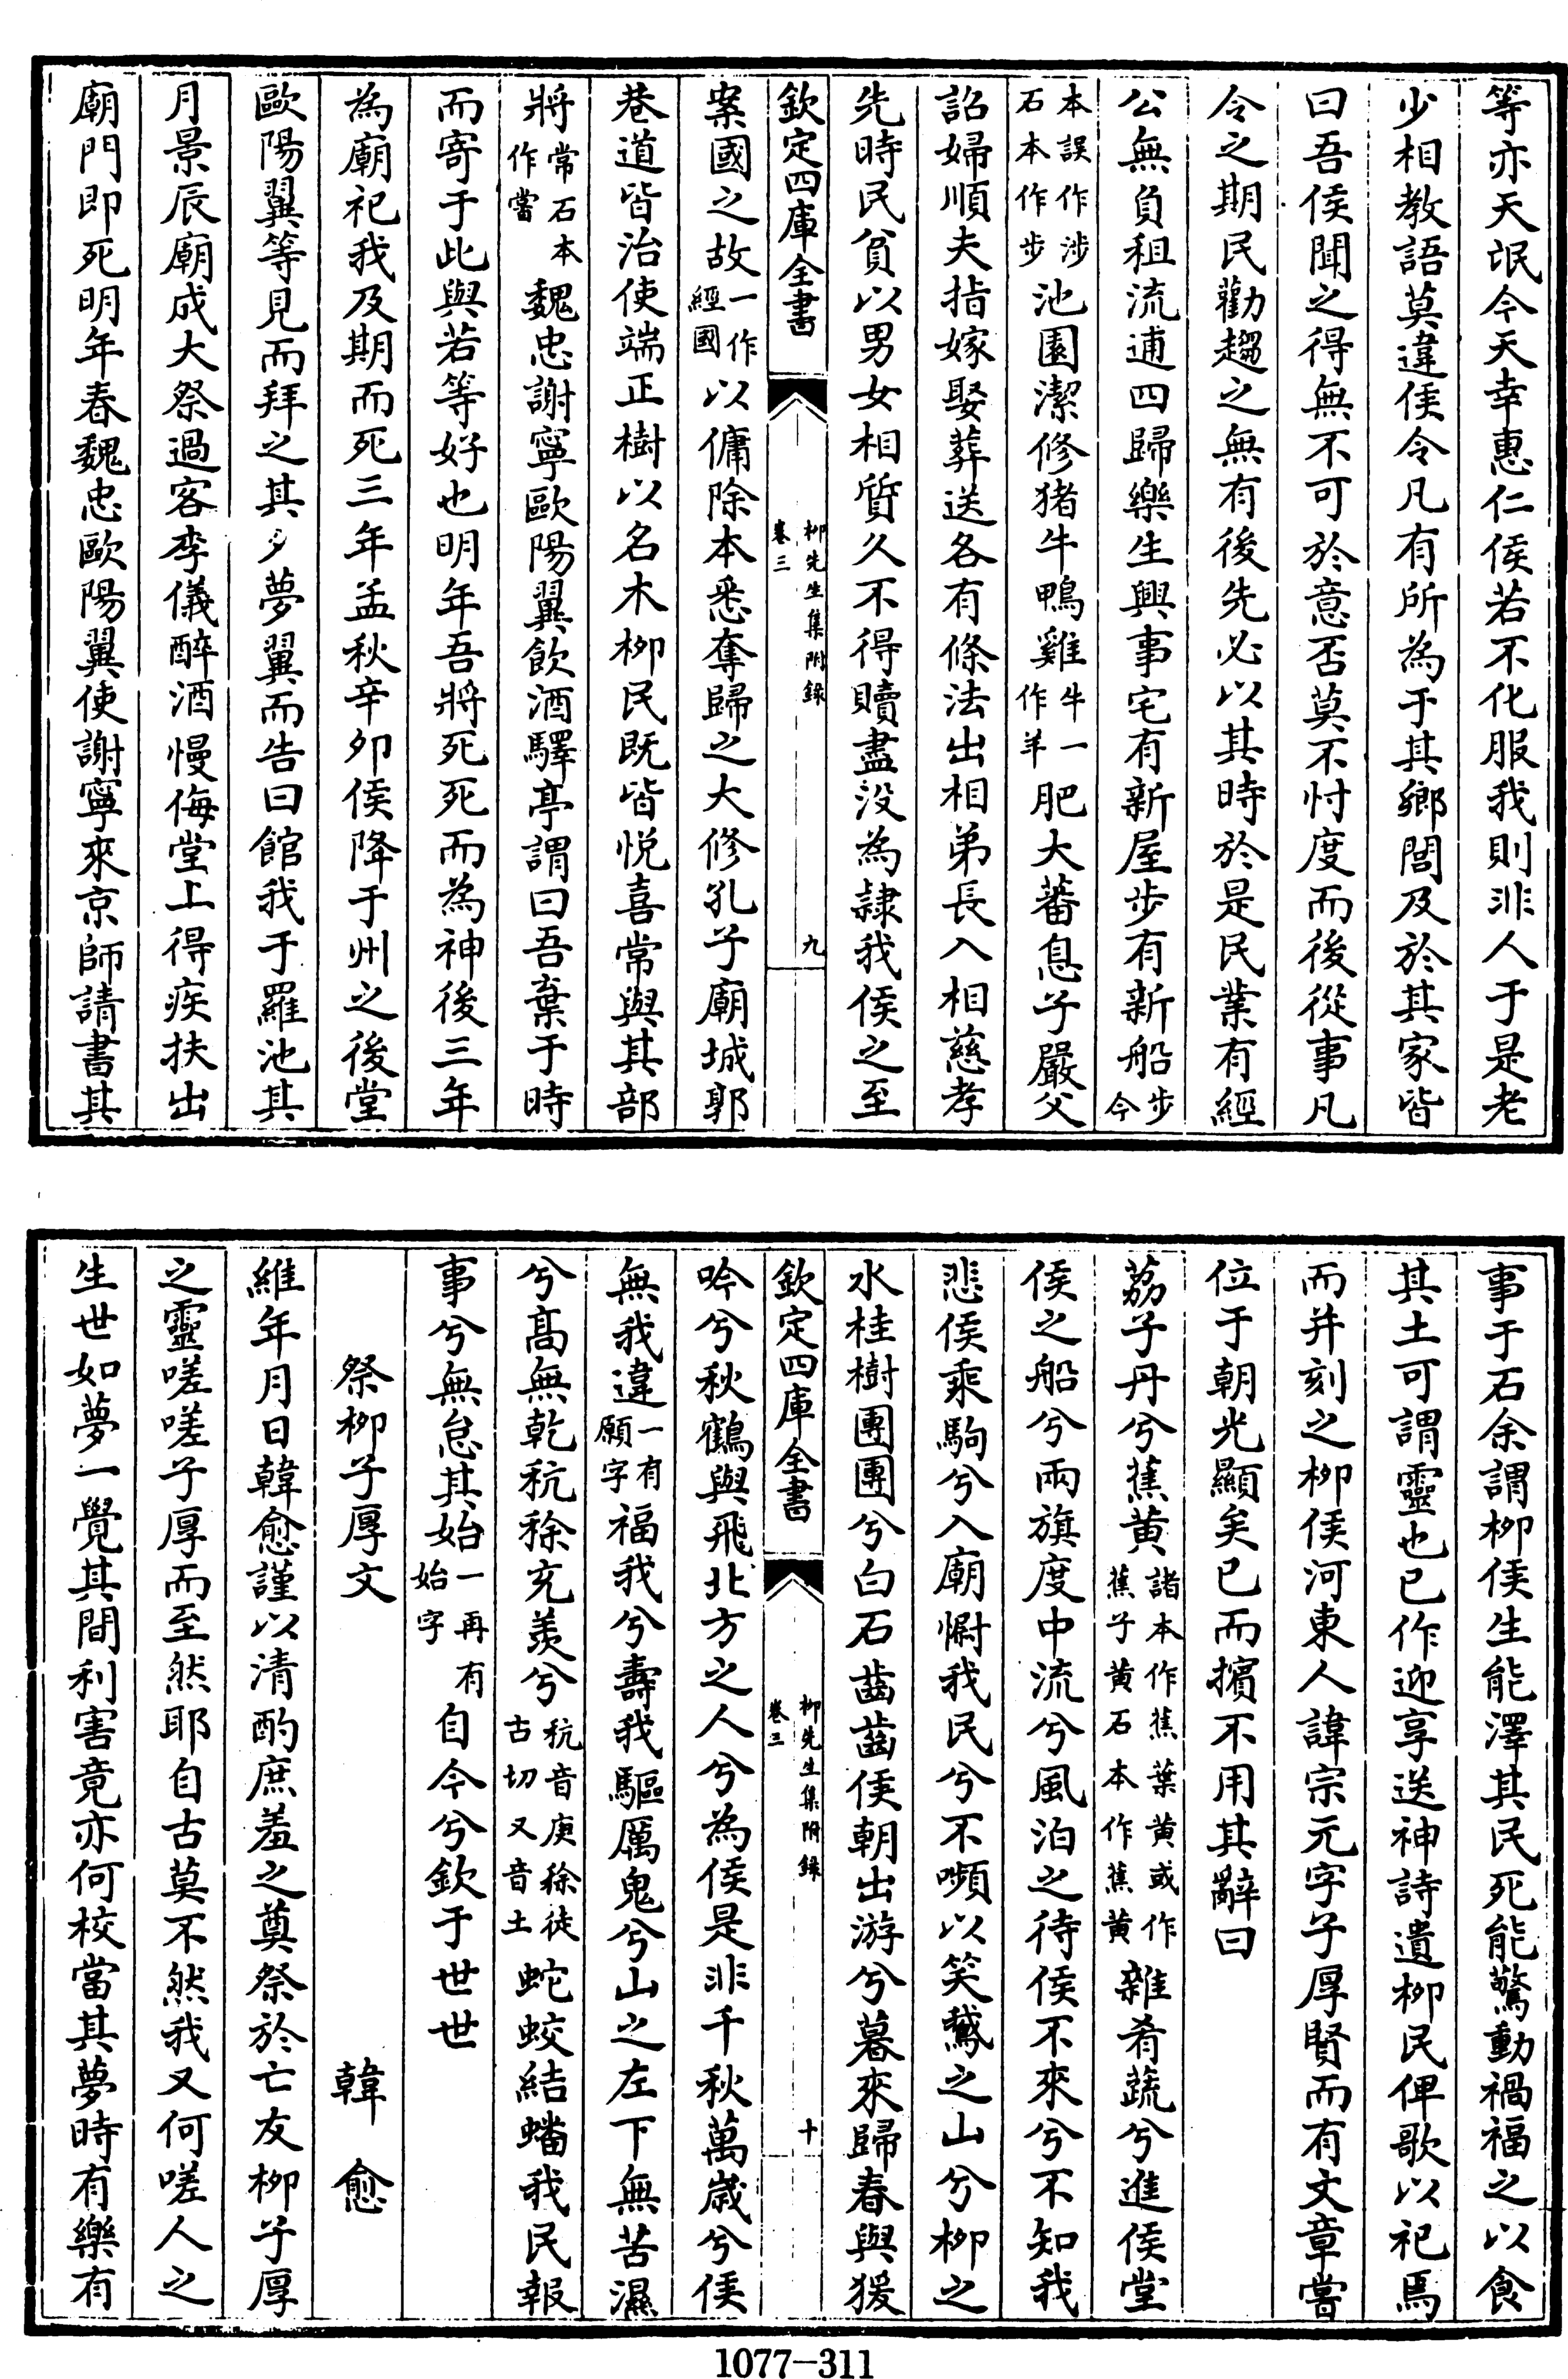 等亦天氓今天幸惠仁侯若不化服我則非人于是老
少相教語莫違侯令凡有所為于其鄉閭及於其家皆
曰吾侯聞之得無不可於意否莫不忖度而後從事凡
令之期民勸趨之無有後先必以其時於是民業有經
公無負租流逋四歸樂生興事宅有新屋步有新船步今
本誤作涉石本作步池園潔修猪牛鴨雞牛一作羊肥大蕃息子嚴父
詔婦順夫指嫁娶葬送各有條法出相弟長入相慈孝
先時民貧以男女相質久不得贖盡没為隷我侯之至
欽定四庫全書 柳先生集附錄 卷三 九
案國之故一作經國以傭除本悉奪歸之大修孔子廟城郭
巷道皆治使端正樹以名木柳民既皆悦喜常與其部
將常石本作嘗魏忠謝寧歐陽翼飲酒驛亭謂曰吾棄于時
而寄于此與若等好也明年吾將死死而為神後三年
為廟祀我及期而死三年孟秋辛夘侯降于州之後堂
歐陽翼等見而拜之其夕夢翼而告曰館我于羅池其
月景辰廟成大祭過客李儀醉酒慢侮堂上得疾扶出
廟門即死明年春魏忠歐陽翼使謝寧來京師請書其
事于石余謂柳侯生能澤其民死能驚動禍福之以食
其土可謂靈也已作迎享送神詩遺柳民俾歌以祀焉
而并刻之柳侯河東人諱宗元字子厚賢而有文章嘗
位于朝光顯矣已而擯不用其辭曰
荔子丹兮蕉黄諸本作蕉葉黄或作蕉子黄石本作蕉黄雜肴蔬兮進侯堂
侯之船兮兩旗度中流兮風泊之待侯不來兮不知我
悲侯乘駒兮入廟慰我民兮不嚬以笑鵞之山兮柳之
水桂樹團團兮白石齒齒侯朝出游兮暮來歸春與猨
欽定四庫全書 柳先生集附錄 卷三 十
吟兮秋鶴與飛北方之人兮為侯是非千秋萬歲兮侯
無我違一有願字福我兮壽我驅厲鬼兮山之左下無苦濕
兮高無乾秔稌充羨兮秔音庚稌徒古切又音土蛇蛟結蟠我民報
事兮無怠其始一再有始字自今兮欽于世世
祭柳子厚文 韓愈
維年月日韓愈謹以清酌庶羞之奠祭於亡友柳子厚
之靈嗟嗟子厚而至然耶自古莫不然我又何嗟人之
生世如夢一覺其間利害竟亦何校當其夢時有樂有
1077-311